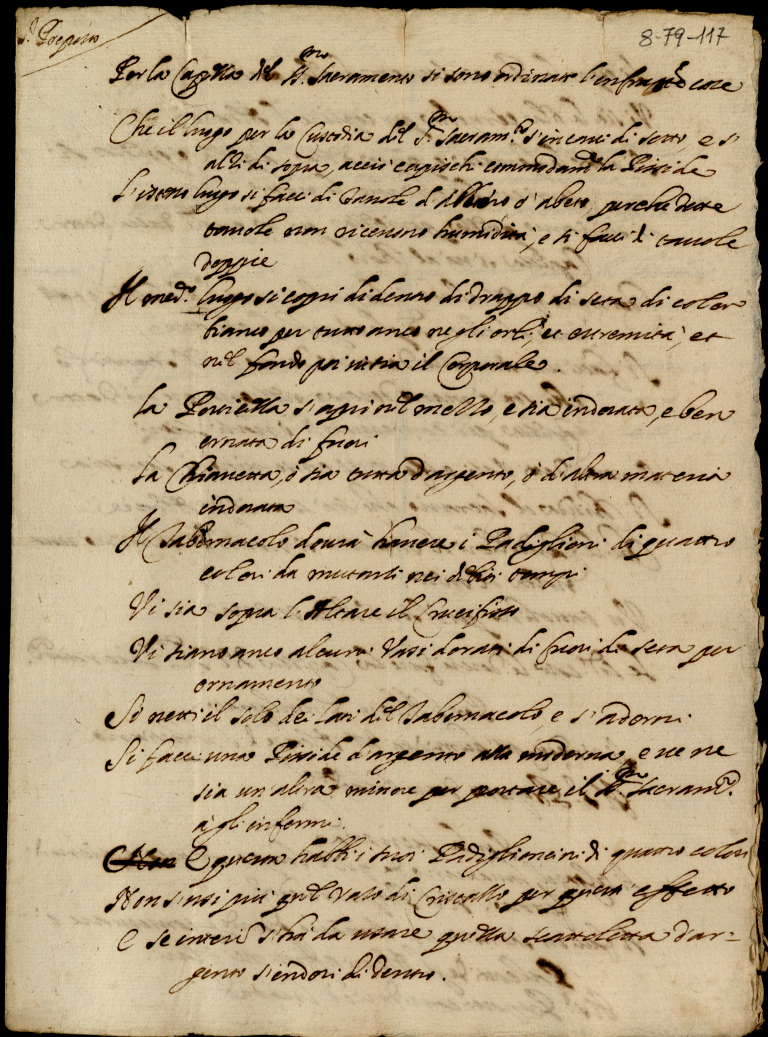 8-79-117
Per la Capella del S.mo Sacramento si sono ordinate l'infra.tte cose
Che il luogo per la Custodia del S.mo Sacram.to s'incavi di sotto, e s'
alzi di sopra, acciò capischi commodam.te la Pisside
L'istesso luogo si facci di Tavole d'Albero o' abete, perche dette
tavole non ricevono humidità, e si facci di tavole
doppie
Il med.o luogo si copri di dentro di drappo di seta di color
bianco per tutto anco negli orli, et estremità, et
nel fondo poi vi stia il Corporale.
La Portiella s'apri nel mezzo, e sia indorata, e ben
ornata di fuori
La Chiavetta, ò sia tutta d'argento, ò d'altra materia
indorata
Il Tabernacolo dourà hauere i Padiglioni di quattro
colori da mutarsi nei debiti tempi
Vi sia sopra l'Altare il Crucifisso
Vi siano anco alcuni Vasi dorati di fiori di seta per
ornamento
Si netti il solo dei lati del Tabernacolo, e s'adorni
Si facci una Pisside d'argento alla moderna, e ve ne
sia un altra minore per portare il S.mo Sacram.to
à gl'infermi.
E questa habbi i suoi Padiglioncini di quattro colori
Non s'usi più quel Vaso di Cristallo per questo effetto
E se interim s'hà da usare quella scatoletta d'ar=
gento s'indori di dentro.